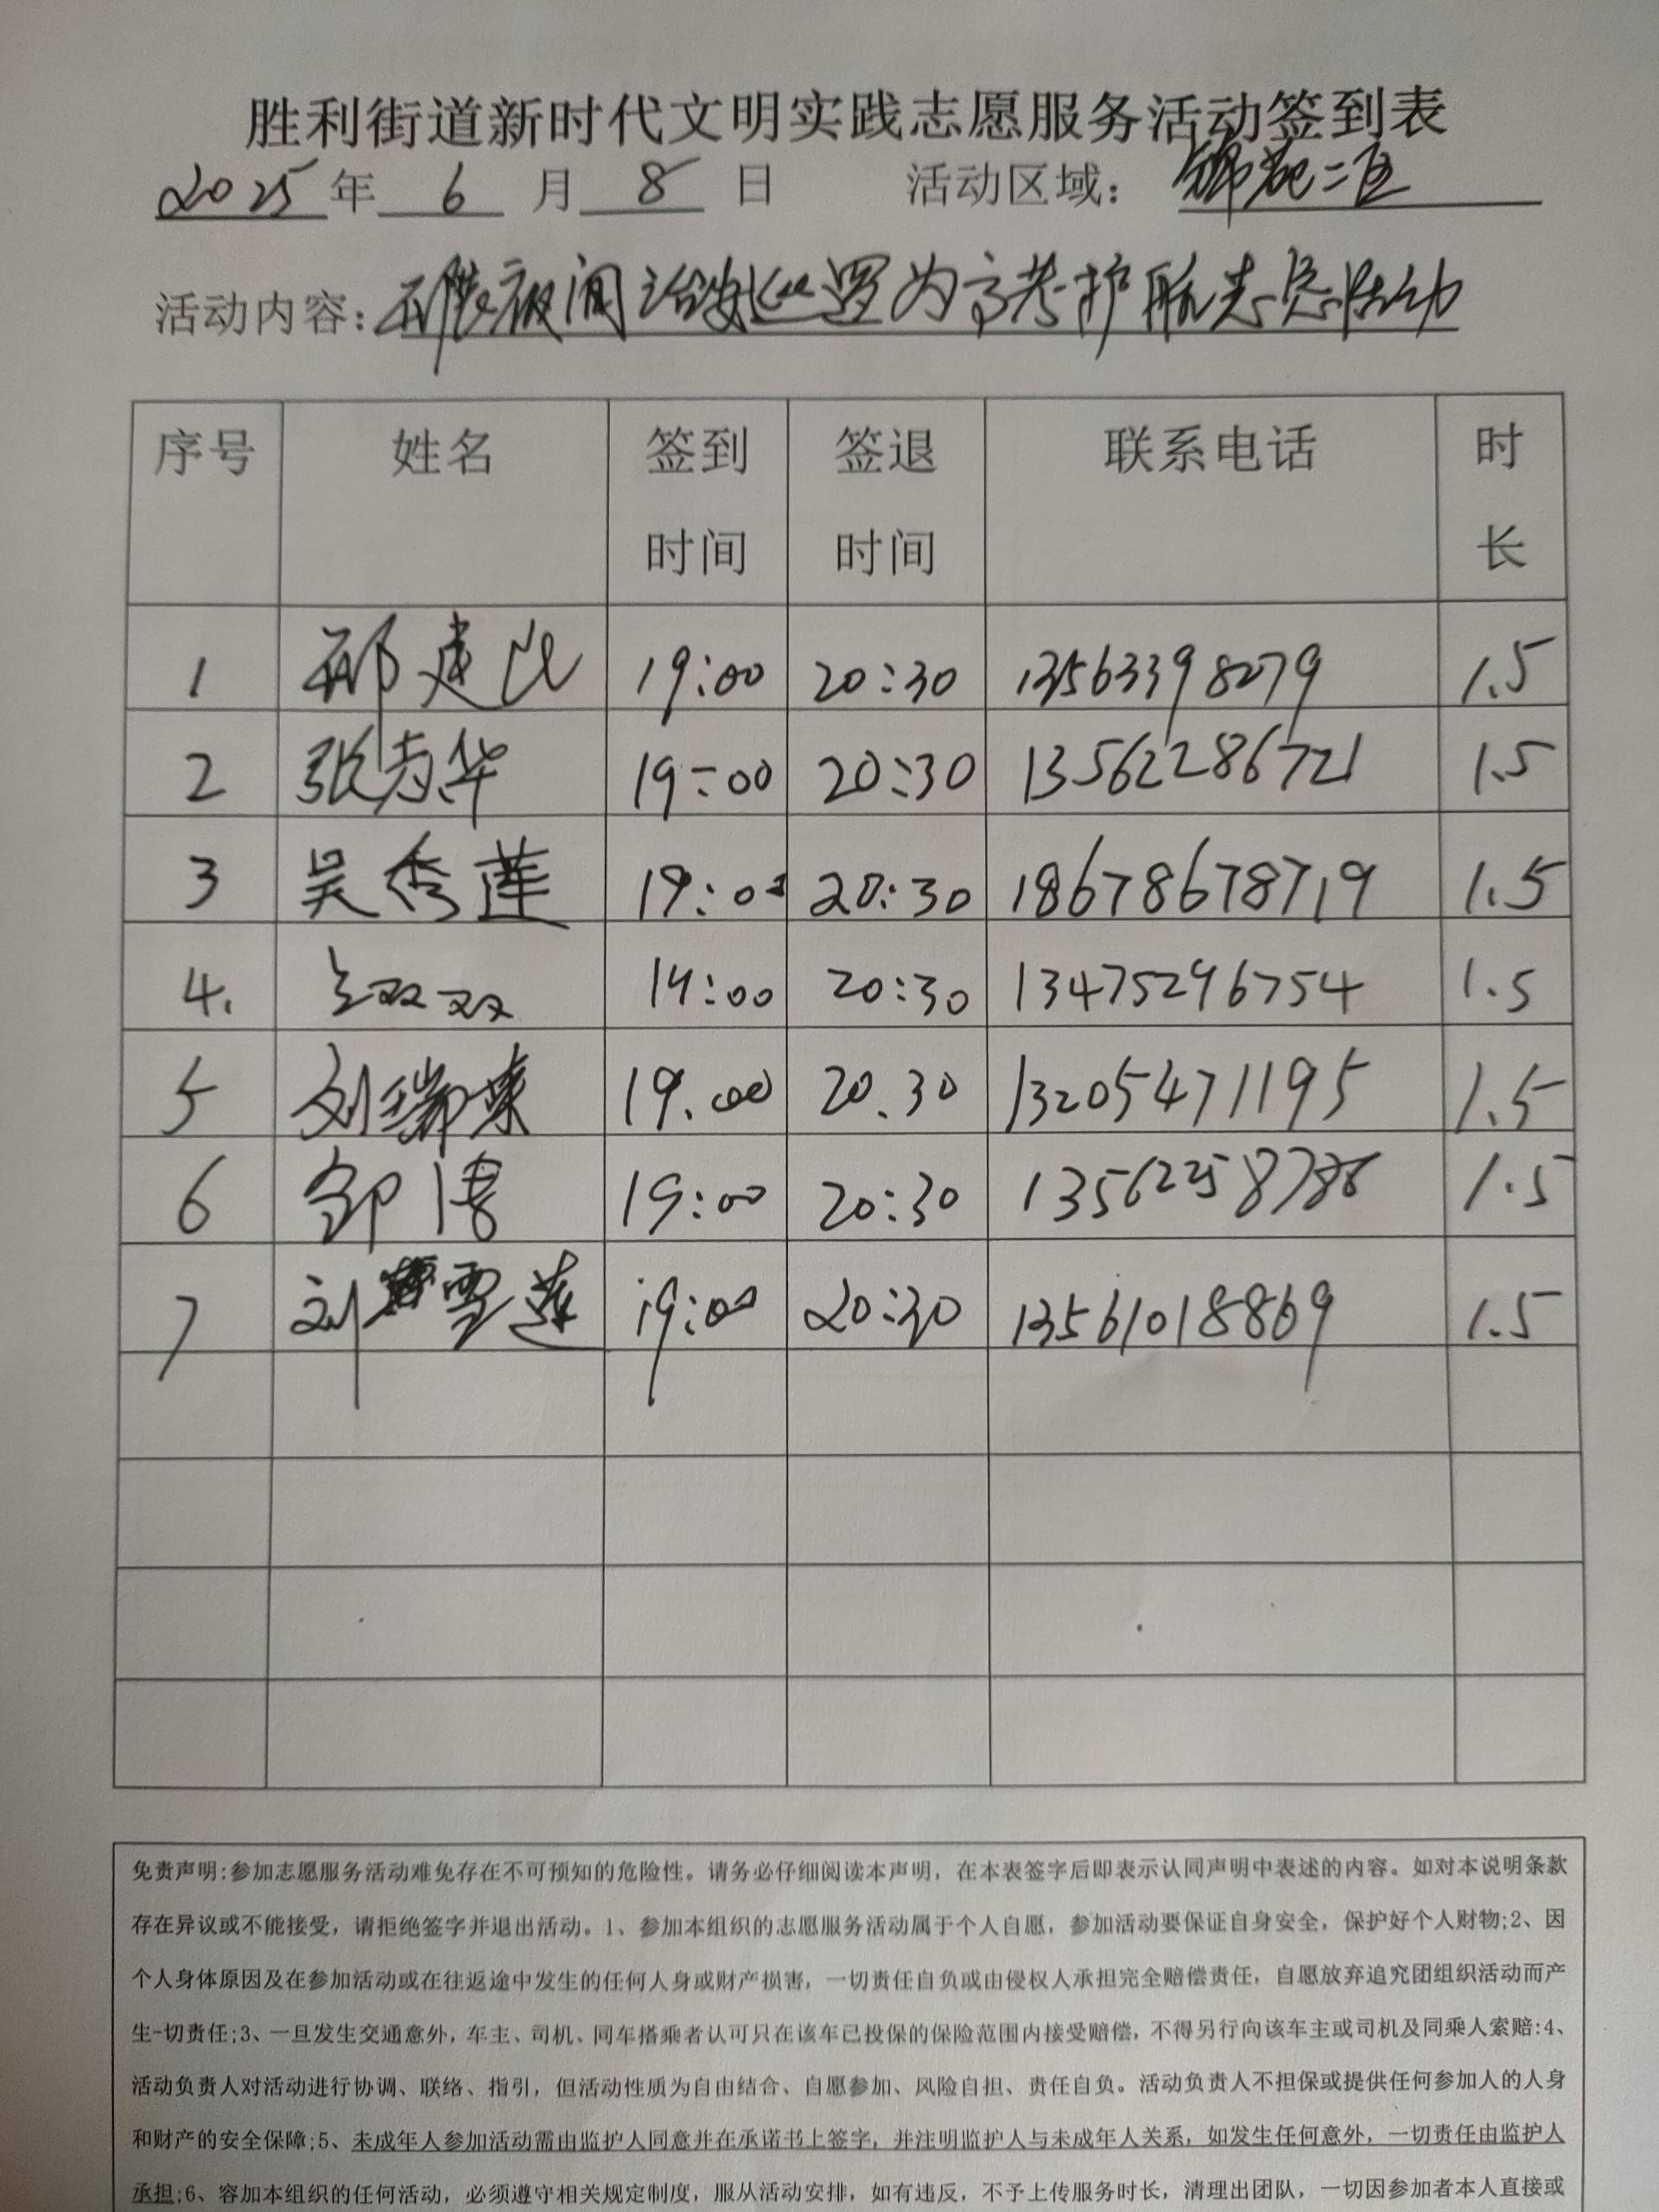 胜利街道新时代文明实践志愿服务活动签到表
2025年 6 月 8 日 活动区域: 锦苑二区
活动内容: 夜间治安巡逻为高考护航志愿活动
序号 姓名 签到时间 签退时间 联系电话 时长
1 邢建 19:00 20:30 13563398279 1.5
2 张秀华 19:00 20:30 13562286721 1.5
3 吴秀莲 19:00 20:30 18678678719 1.5
4. 王双双 19:00 20:30 13475296754 1.5
5 刘瑞来 19.00 20.30 13205471195 1.5
6 邹博 19:00 20:30 1.5
7 刘雪莲 19:00 20:30 13561018869 1.5
免责声明:参加志愿服务活动难免存在不可预知的危险性。请务必仔细阅读本声明，在本表签字后即表示认同声明中表述的内容。如对本说明条款
存在异议或不能接受，请拒绝签字并退出活动。1、参加本组织的志愿服务活动属于个人自愿，参加活动要保证自身安全，保护好个人财物;2、因
个人身体原因及在参加活动或在往返途中发生的任何人身或财产损害，一切责任自负或由侵权人承担完全赔偿责任，自愿放弃追究团组织活动而产
生-切责任;3、一旦发生交通意外，车主、司机、同车搭乘者认可只在该车已投保的保险范围内接受赔偿，不得另行向该车主或司机及同乘人索赔:4、
活动负责人对活动进行协调、联络、指引，但活动性质为自由结合、自愿参加、风险自担、责任自负。活动负责人不担保或提供任何参加人的人身
和财产的安全保障;5、未成年人参加活动需由监护人同意并在承诺书上签字，并注明监护人与未成年人关系，如发生任何意外，一切责任由监护人
承担;6、容加本组织的任何活动，必须遵守相关规定制度，服从活动安排，如有违反，不予上传服务时长，清理出团队，一切因参加者本人直接或